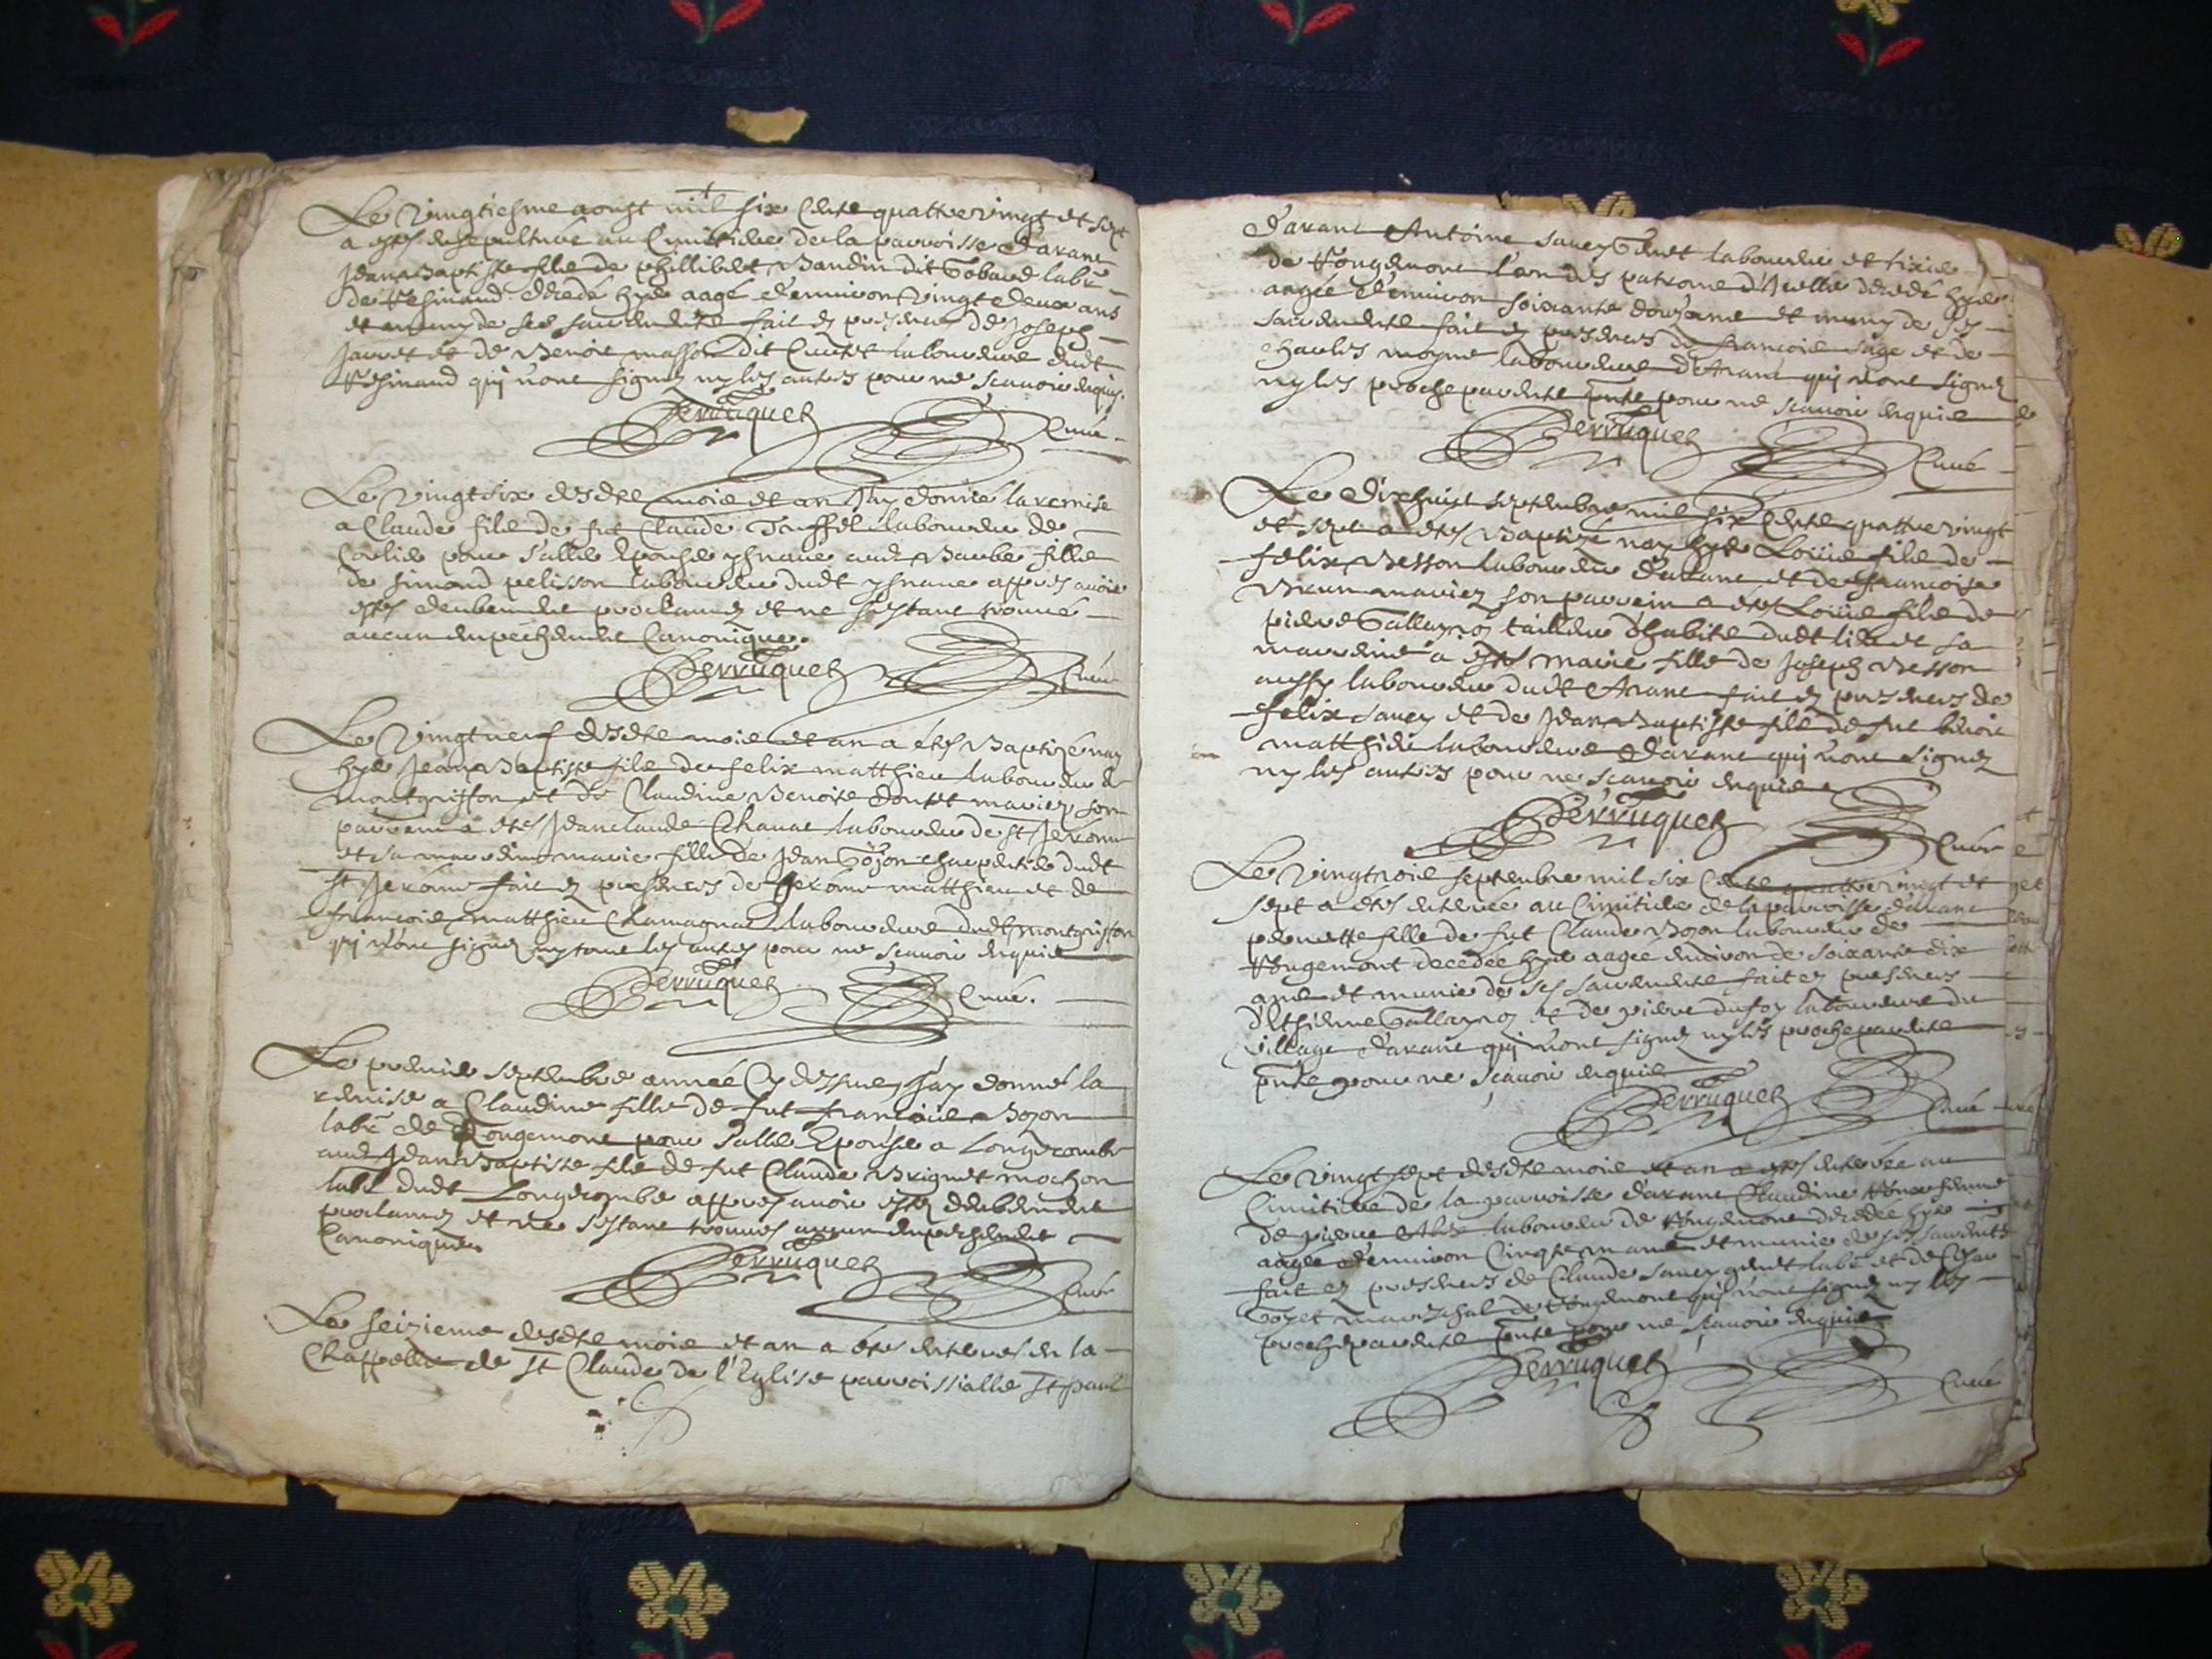 Le Vingtiesme aoust mil six Cents quattre vingt et sept
a estes ensepulturé au Cimitiere de la parroisse d'arant
Jean Baptiste fils de phillibert Baudin dit Gobaud labr
de Resinand decedé hyer aagé d'environ vingt deux ans
et muny de ses sacrements fait ez presences de Joseph
Jacquet et de Benoit masson dit laboureurs dudt
Resinand qui n'ont signez ny les autres pour ne scavoir enquis.
Perruquet Curé
Le Vingt six desdts mois et an J'ay donné la remise
a Claude fils de fut Claude laboureur de
Corlier pour s'aller Epouser ysnave avec Barbe fille
de simond pelisson laboureur dudt ysnave appres avoir
estes deubement proclamez et ne s'estant trouvé
aucun enpechement Canonique.
Perruquet Curé
Le Vingt neuf desdts mois et an a étes Baptizé nay
hyer Jean Baptiste fils de felix matthieu laboureur de
montgriffon et de Claudine Benoite mariez son
parrein a étes Jean claude Chavat laboureur de st Jerome
et sa marreine marie fille de Jean Gojon charpentier dudt
st Jerome fait ez presences de Jerome matthieu et de
francois matthieu Chamagnat laboureurs dudt montgriffon
qui n'ont signez ny tous les autres pour ne scavoir enquis
Perruquet Curé.
Le premier septembre année Cy dessus J'ay donné la
remise a Claudine fille de fut francois Bozon
labr de Rougemont pour s'aller Epouser a Longecombe
avec Jean Baptiste fils de fut Claude Brignet mochon
labr dudt Longecombe appres avoir estez deubement
proclamez et ne s'estant trouvés aucun enpechement
Canonique.
Perruquet Curé
Le seizieme desdts mois et an a étes enterres en la
Chappelle de st Claude de l'Eglise parroissialle st paul
d'arant Antoine savey laboureur et
de Rougemont l'un des patrons d'Icelle decedé hyer
aagée d'environ soixante douze ans et muny de ses
sacrements fait ez presences de francois sage et de
Charles moyne laboureurs d'Arant qui n'ont signez
ny les proche parents pnts pour ne scavoir enquis
Perruquet Curé
Le dixhuict septembre mil six Cents quattre vingt
et sept a étes Baptizé nay hyer Loüis fils de
felix Besson laboureur d'arant et de francoise
Brun mariez son parrein a étes Loüis fils de
pierre Gallayzoz tailleur d'habits dudt lieu et sa
marreine a estes marie fille de Joseph Besson
aussy laboureur dudt Arant fait ez presences de
felix savey et de Jean Baptiste fils de fut benoit
matthieu laboureurs d'arant qui n'ont signez
ny les autres pour ne scavoir enquis
Perruquet Curé
Le Vingtrois septembre mil six Cents quattre vingt et
sept a étes enterrée au Cimitiere de la parroisse d'arant
pernette fille de fut Claude Bozon laboureur de
Rougemont decedée hyer aagée environ de soixante dix
ans et munie de ses sacrements fait ez presences
d'Esthienne Gallayzoz et de pierre dufoy laboureurs du
village d'arant qui n'ont signez ny les proche parents
pnts pour ne scavoir enquis
Perruquet Curé
Le Vingt sept desdts mois et an a estes enterrée au
Cimitiere de la parroisse d'arant Claudine femme
de pierre laboureur de Rougemont decedée hyer
aagée d'environ Cinqte ans et munie de ses sacremts
fait ez presences de Claude savey labr et de
Goyet mareschal de Rougemont qui n'ont signez ny les
proche parents pnts pour ne scavoir enquis
Perruquet Curé